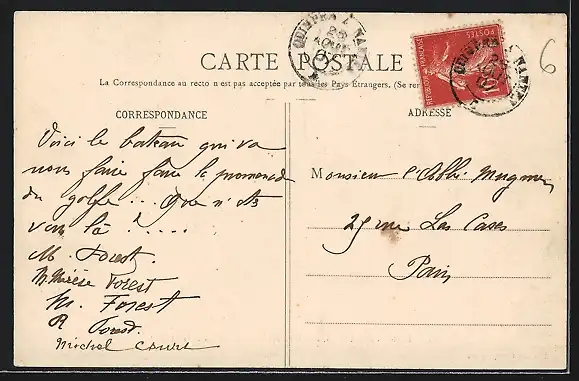 QUIMPER A NANTES
25
AOUT
07
CARTE POSTALE
La Correspondance au recto n'est pas acceptée par tous les Pays Étrangers. (Se ren
REPUBLIQUE FRANÇAISE
POSTES
10
QUIMPER A NANTES
6
CORRESPONDANCE
ADRESSE
Voici le bateau qui va
nous faire faire la promenade
du golfe ... que n'êtes
vous là ! ....
M. Forest
M. Thérèse Forest
M. Forest
R Forest.
Michel
Monsieur l'Abbé Mugnier
25 rue Las Cases
Paris